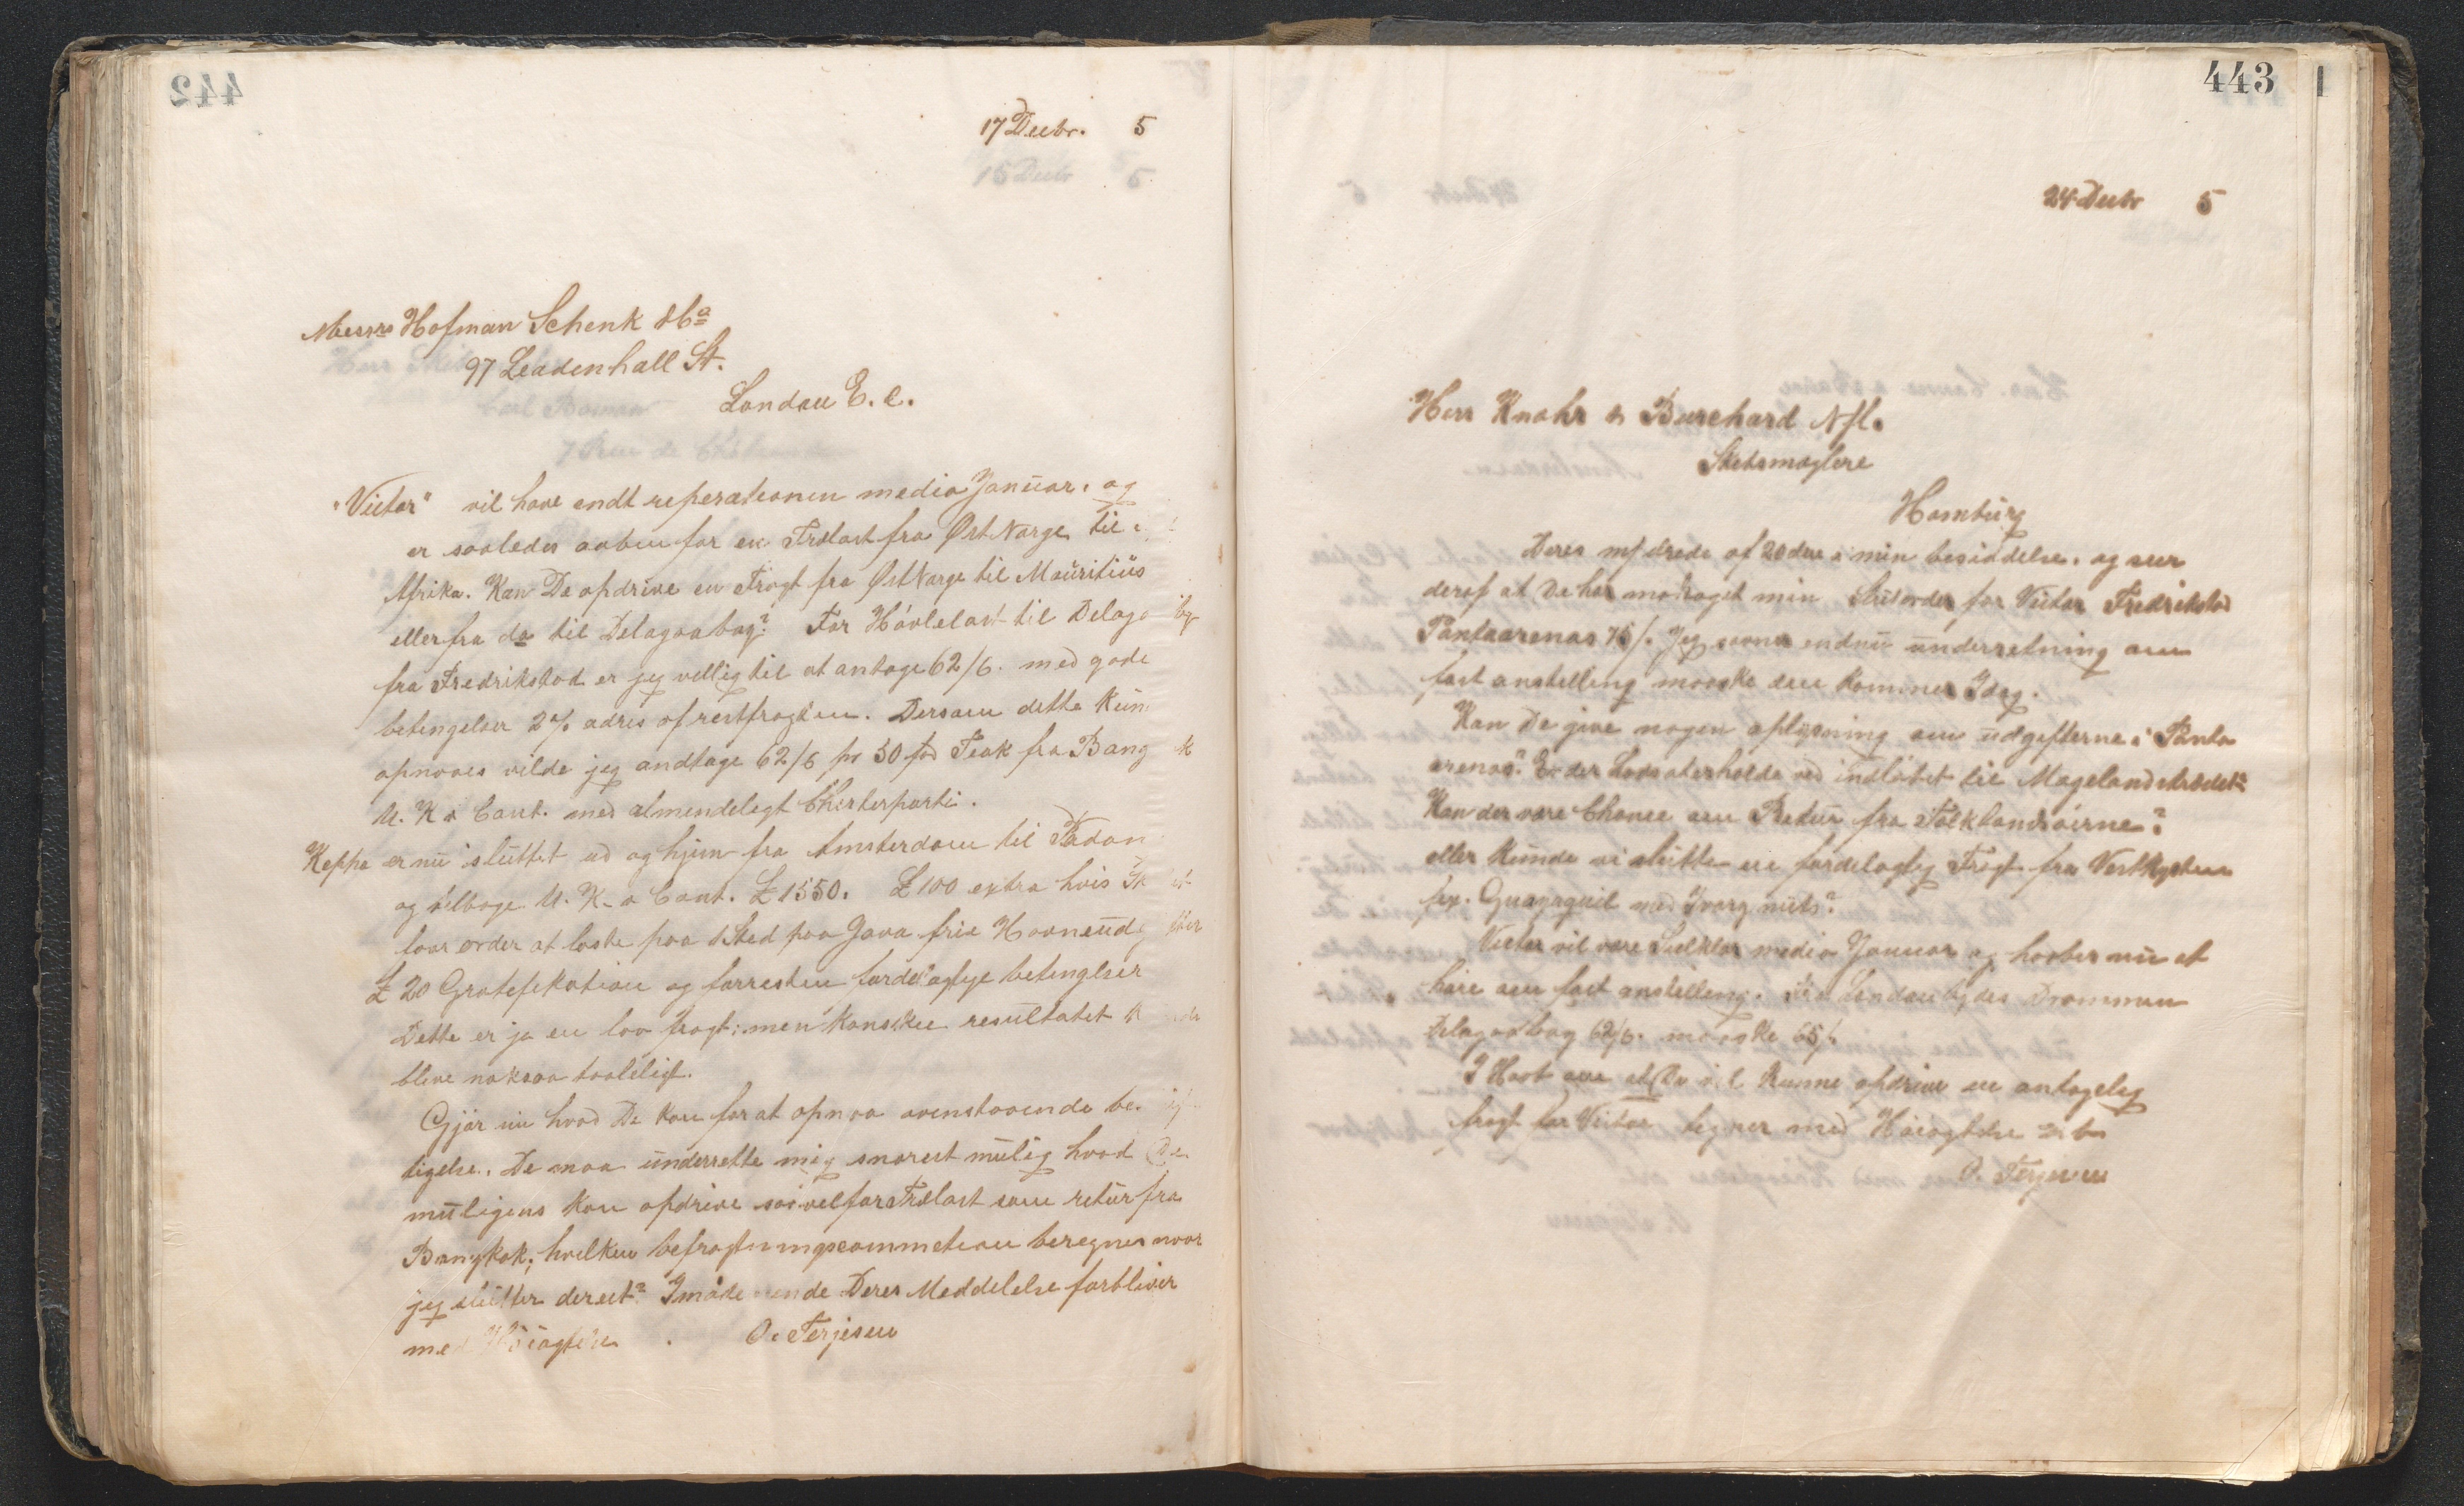 442
17 Decbr. 5
15 Decbr 5
Messrs Hofman Schenk & Co
97 Leadenhall St.
London E. C.
"Victor" vil have endt reperationen medio Januar. og
er saaledes aaben for en Trælast fra Øst Norge til
Afrika. Kan De opdrive en Fragt fra Øst Norge til Mauritius
eller fra do til Delagoabay? For Hóvlelast til Delago bay
fra Fredrikstad er jeg villig til at antage 62/6. med gode
betingelser 2% adres af restfragten. Dersom dette kun
opnaaes vilde jeg andtage 62/6 pr 50 fod Teak fra Bang k
U. K & Cont. med almendeligt Charterparti.
Keppa er nu sluttet ud og hjem fra Amsterdam til Padan
og tilbage U. K. & Cont. £ 1550. £ 100 extra hvis Sk
faar order at losse paa 1 Sted paa Java frie Havneudg fter
£ 20 Gratefikation og forresten fordelagtige betingelser
Dette er jo en lav fragt: men kanskee resultatet k nde
blive noksaa taaleligt.
Gjør nu hvad De kan for at opnaa ovenstaaende be
tigelse. De maa underrette mig snarest mulig hvad De
muligens kan opdrive saavel for Trælast som retur fra
Bangkok; hvilken befragtningscommetion beregnes naar
jeg slutter derect? Imøde ende Deres Meddelelse forbliver
med Hóiagtelse. O. Terjesen
443
24 Decbr 5
Herr Knohr & Burchard Nfl.
Skibsmæglere
Hamburg
Deres m/ ærede af 20 dec i min besiddelse. og seer
deraf at De har modtaget min Slutorder for Victor Fredrikstad
Pantaarenas 75/. Jeg savner endnu underretning om
fast anstelling maaske den kommer Idag.
Kan De give nogen oplysning om udgifterne i Panta
arenas? Er der Lods aterholde ved indløbet til Magelandstrædet?
Kan der være Chance om Retur fra Falklandsóerne?
eller kunde vi slutte en fordelagtig Fragt fra Vestkysten
fex. Guayaquil med Ivory nuts?
Victor vil være Seilklar medio Januar og haaber nu at
hóre om fast anstelling. Fra London bydes Drammen
Delagoabay 62/6. maaske 65/.
I Haab om at De vil kunne opdrive en antagelig
fragt for Victor tegner med Hóiagtelse
O. Terjesen